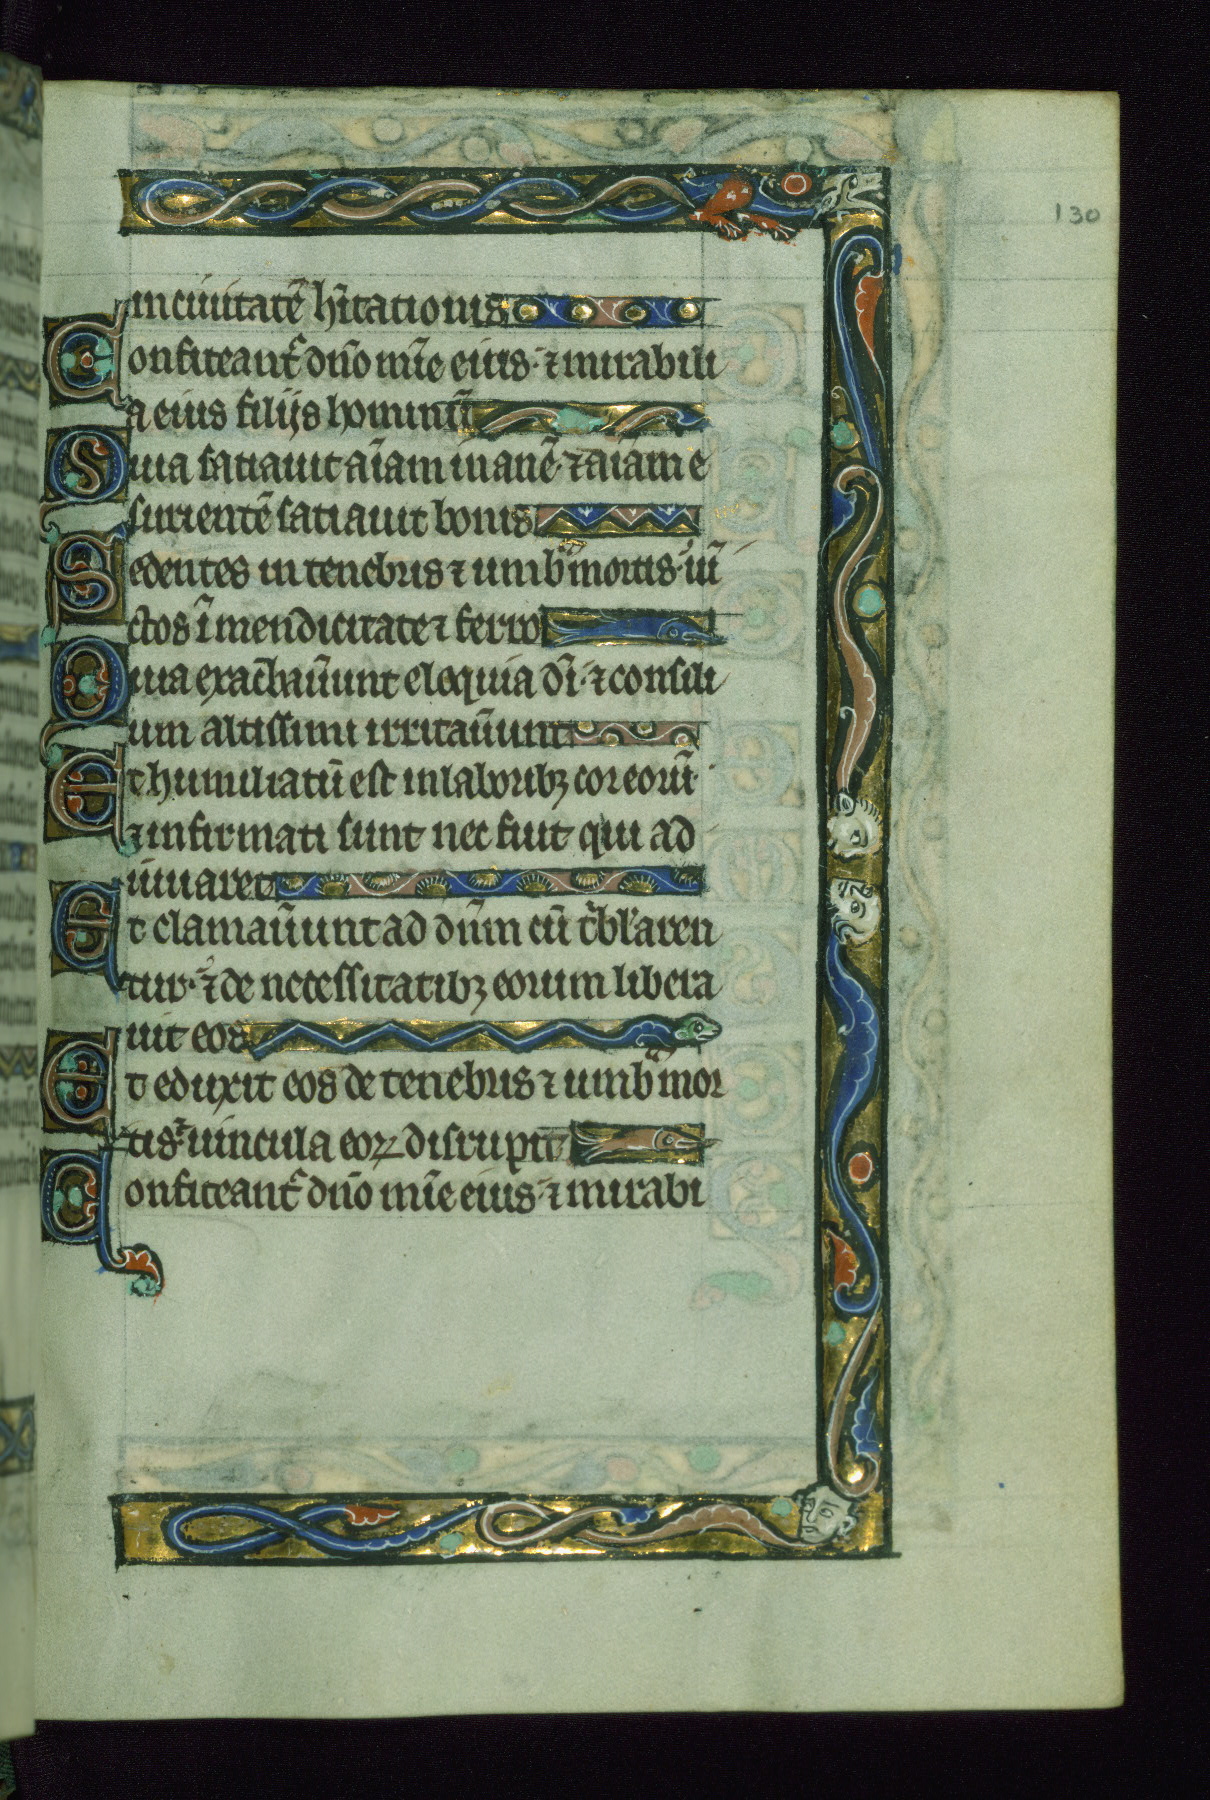 130
in ciuitatē hītationis
Confiteant᷑ dn̄o mīe eius · ⁊ mirabili
a eius filijs hominū
Quia satiauit aīam inanē · ⁊ aīam e
surientē satiauit bonis
Sedentes in tenebris ⁊ umbᵃ mortis · uī
ctos ī mendicitate ⁊ ferro
Quia exac̄bauer̄unt eloquia dī · ⁊ consili
um altissimi irritauer̄unt
Et humiliatū est in laboribꝫ cor eorū ·
⁊ infirmati sunt nec fuit qui ad
iuuaret
Et clamauer̄unt ad dn̄m cū t̄bl'aren
tur · ⁊ de necessitatibꝫ eorum libera
uit eos
Et eduxit eos de tenebris ⁊ umbᵃ mor
tis · ⁊ uincula eoꝝ disrupit
Confiteant᷑ dn̄o mīe eius · ⁊ mirabi